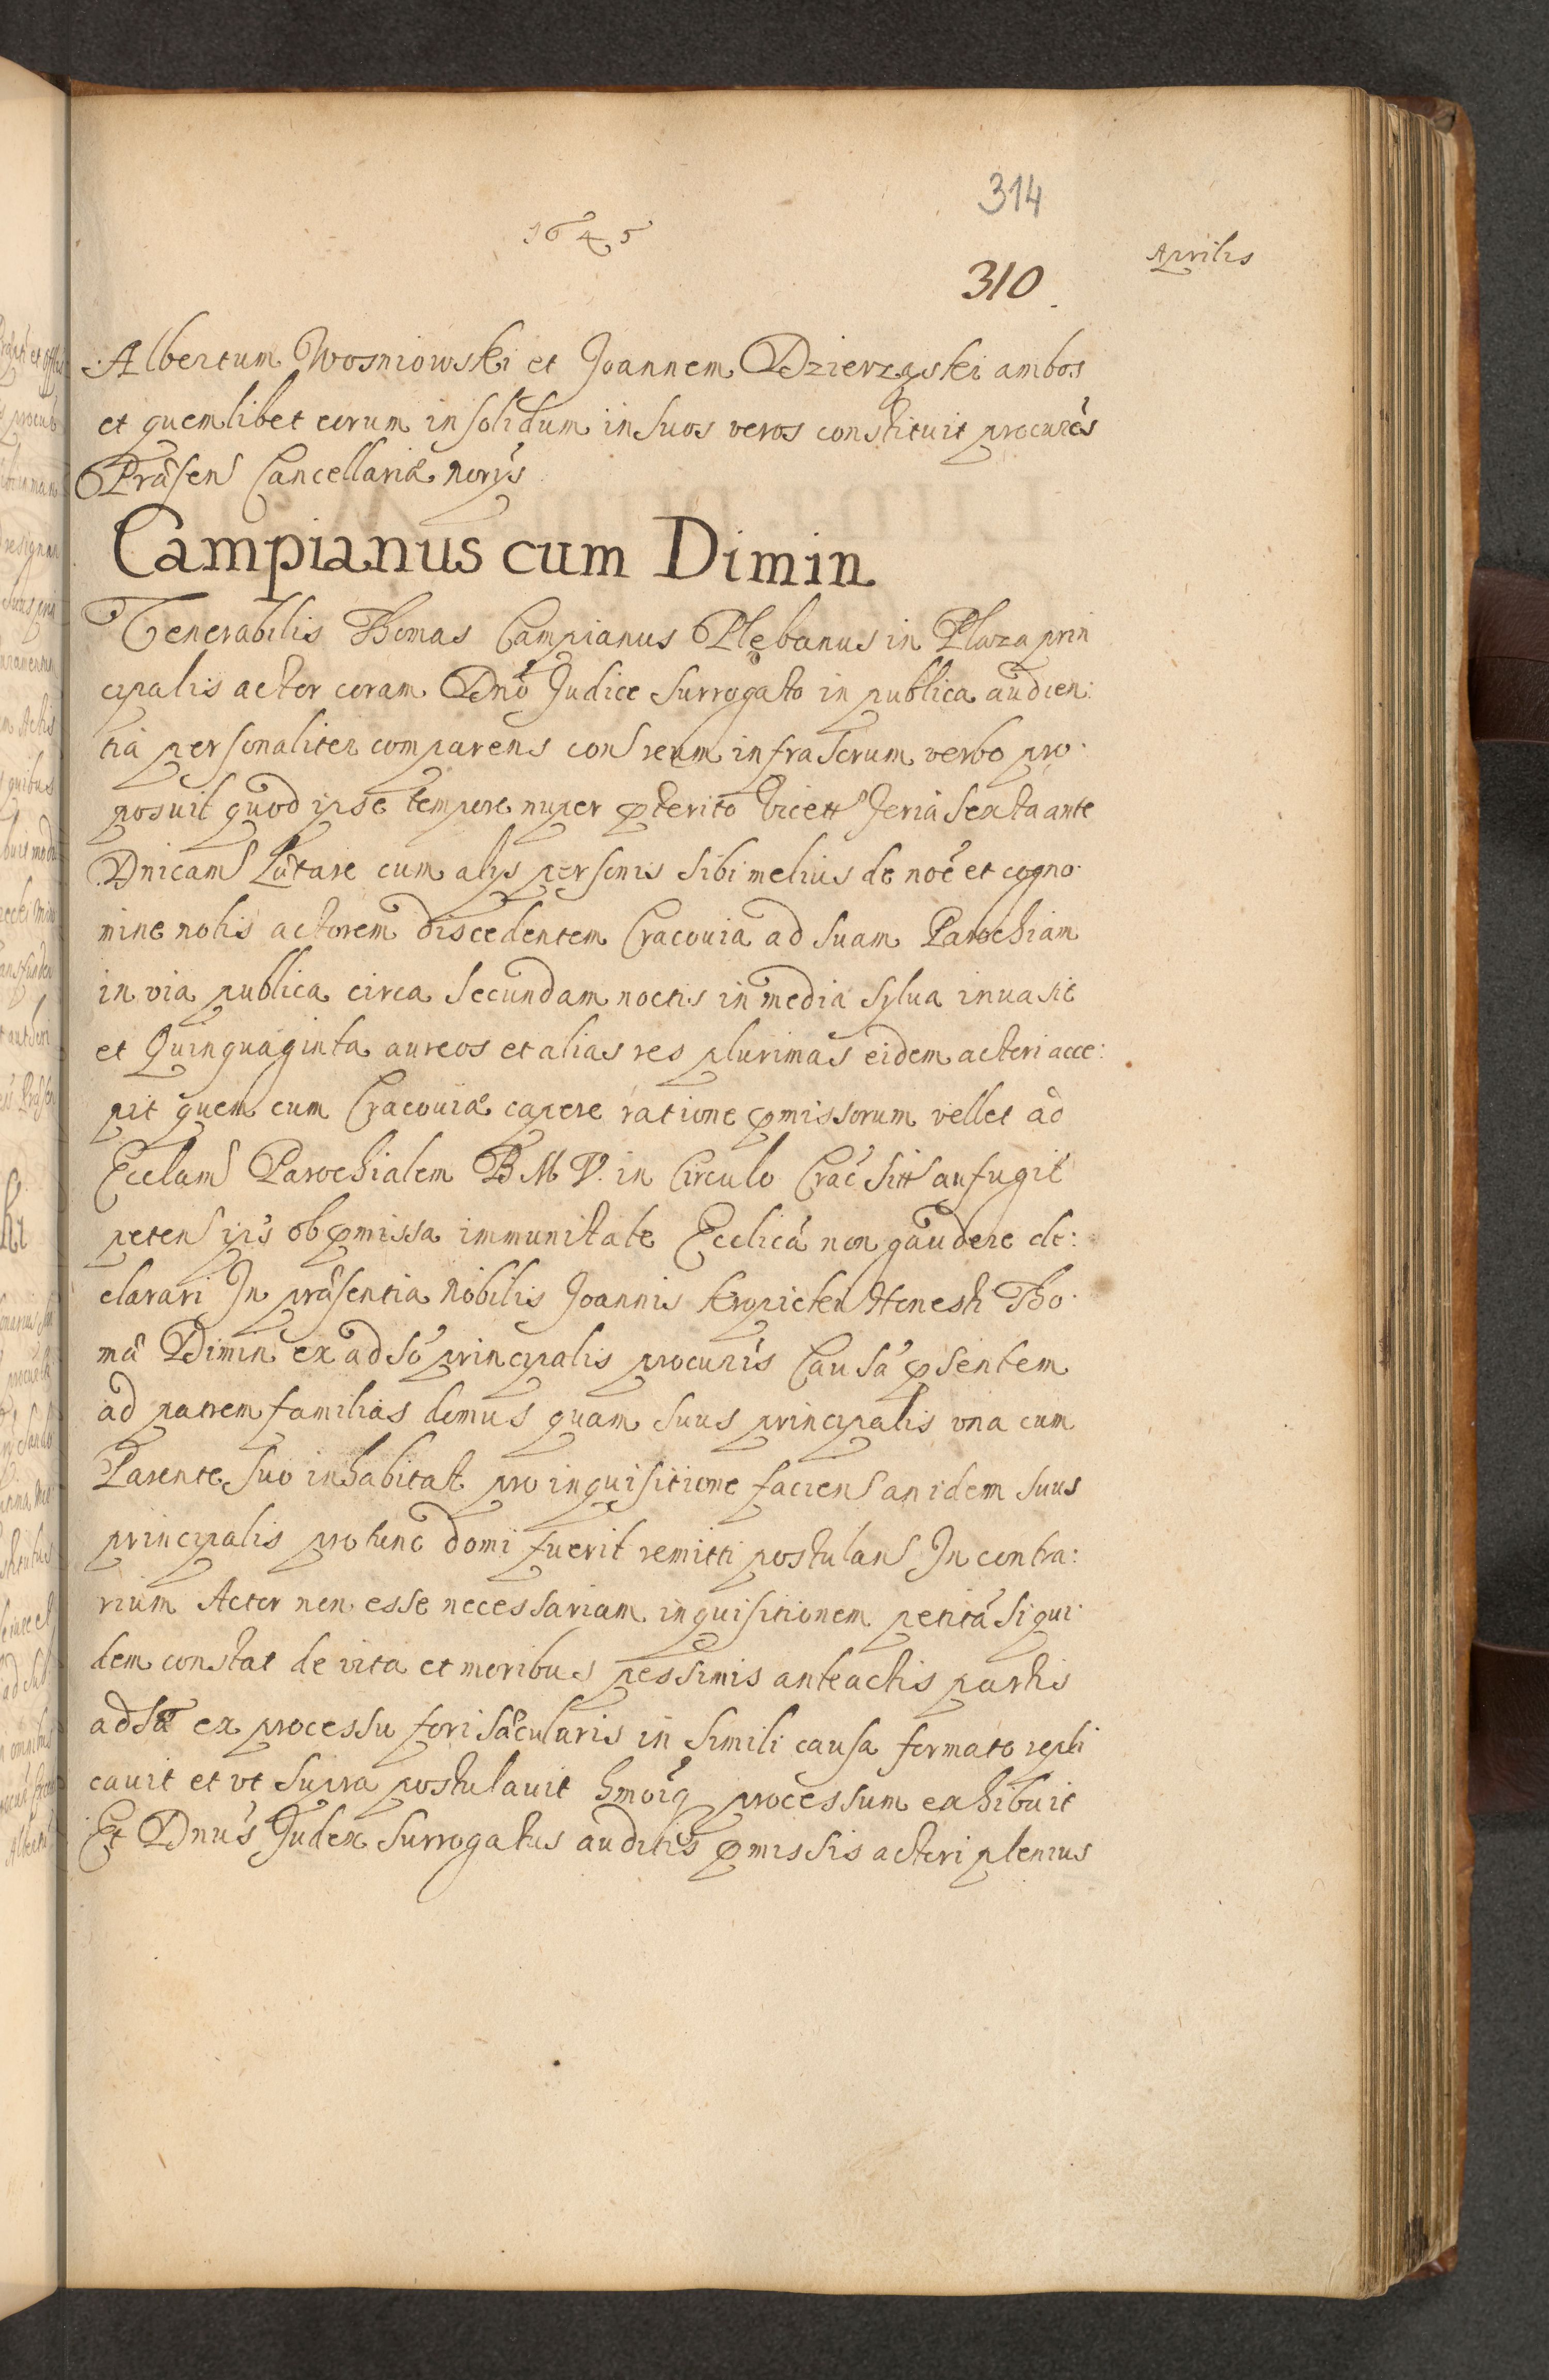 314
1645
Aprilis
310
Albertum Wosniowski et Joannem Dzierzgski ambos
et quemlibet eorum in solidum in suos veros constituit procurēs
Præsen Cancellariæ norÿs
Campianus cum Dimin
Venerabilis Thomas Campianus Plębanus in Plaza prin
cipalis actor coram Dnō Judice Surrogato in publica audien:
tia personaliter comparens con reum infrascrum verbo pro
posuit quod ipse tempore nuper pterito feria sexta ante
Dnicam Lætare cum alijs personis sibi melius de noē et cogno
mine notis actorem discedentem Cracouia ad suam Parochiam
in via publica circa secundam noctis in media sylua inuasit
et Quinquaginta aureos et alias res plurimas eidem actori acce:
pit quem cum Cracouiæ capere ratione pmissorum vellet ad
Ecclam Parochialem B M V. in Circulo Crac sitt aufugit
peten ips ob pmissa immunitate Ecclica non gaudere de:
clarari In præsentia Nobilis Joannis Honesti Tho
mæ Dimin ex adso principalis procuris Causā psentem
ad patrem familias domus quam suus principalis vna cum
Parente suo inhabitat pro inquisitione facien an idem suus
principalis pro tunc domi fuerit remitti postulan In contra:
rium Actor non esse necessariam inquisitionem petitā siqui
dem constat de vita et moribus pessimis anteactis partis
adsæ ex processu fori sæcularis in simili causa formato repli
cauit et vt supra postulauit hmoiq processum exhibuit
Et Dnus Judex Surrogatus auditis pmissis actori plenius